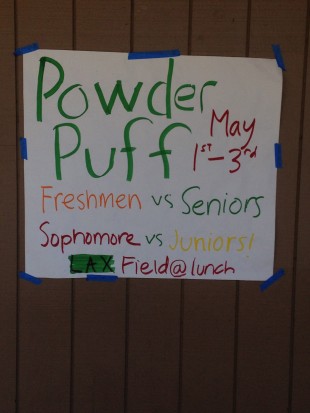 Powder
Puff May 1st-3rd
Freshmen vs Seniors
Sophomore vs Juniors!
LAX Field@lunch